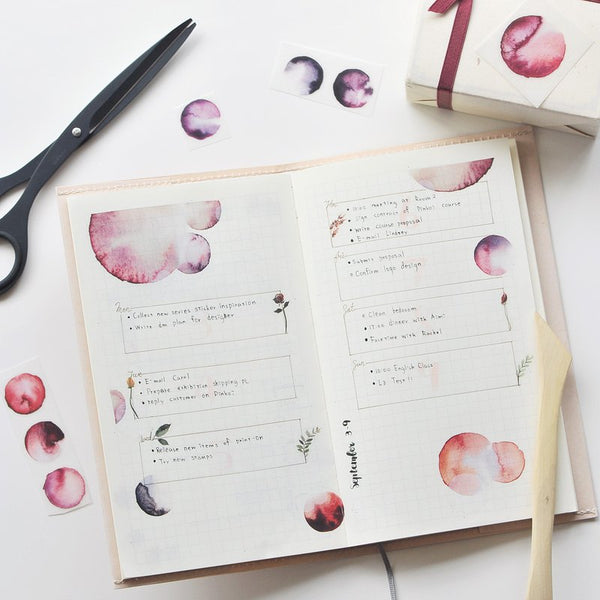 Mon
• Collect new series sticker inspiration
• Write dm plan for designer
Tue
• E-mail Carol
• Prepare exhibition shipping PL
• Reply customer on Pinkoi
Wed
• Release new items of print-on
• Try new stamps
Thu
• 10:00 meeting at Room 2
• Sign contract of Pinkoi course
• Write course proposal
• E-mail Lindsey
Fri
• Submit proposal
• Confirm logo design
Sat
• Clean bedroom
• 17:00 dinner with Aimi
• Facetime with Rachel
Sun
• 10:00 English Class
• Test !!
September 3-9